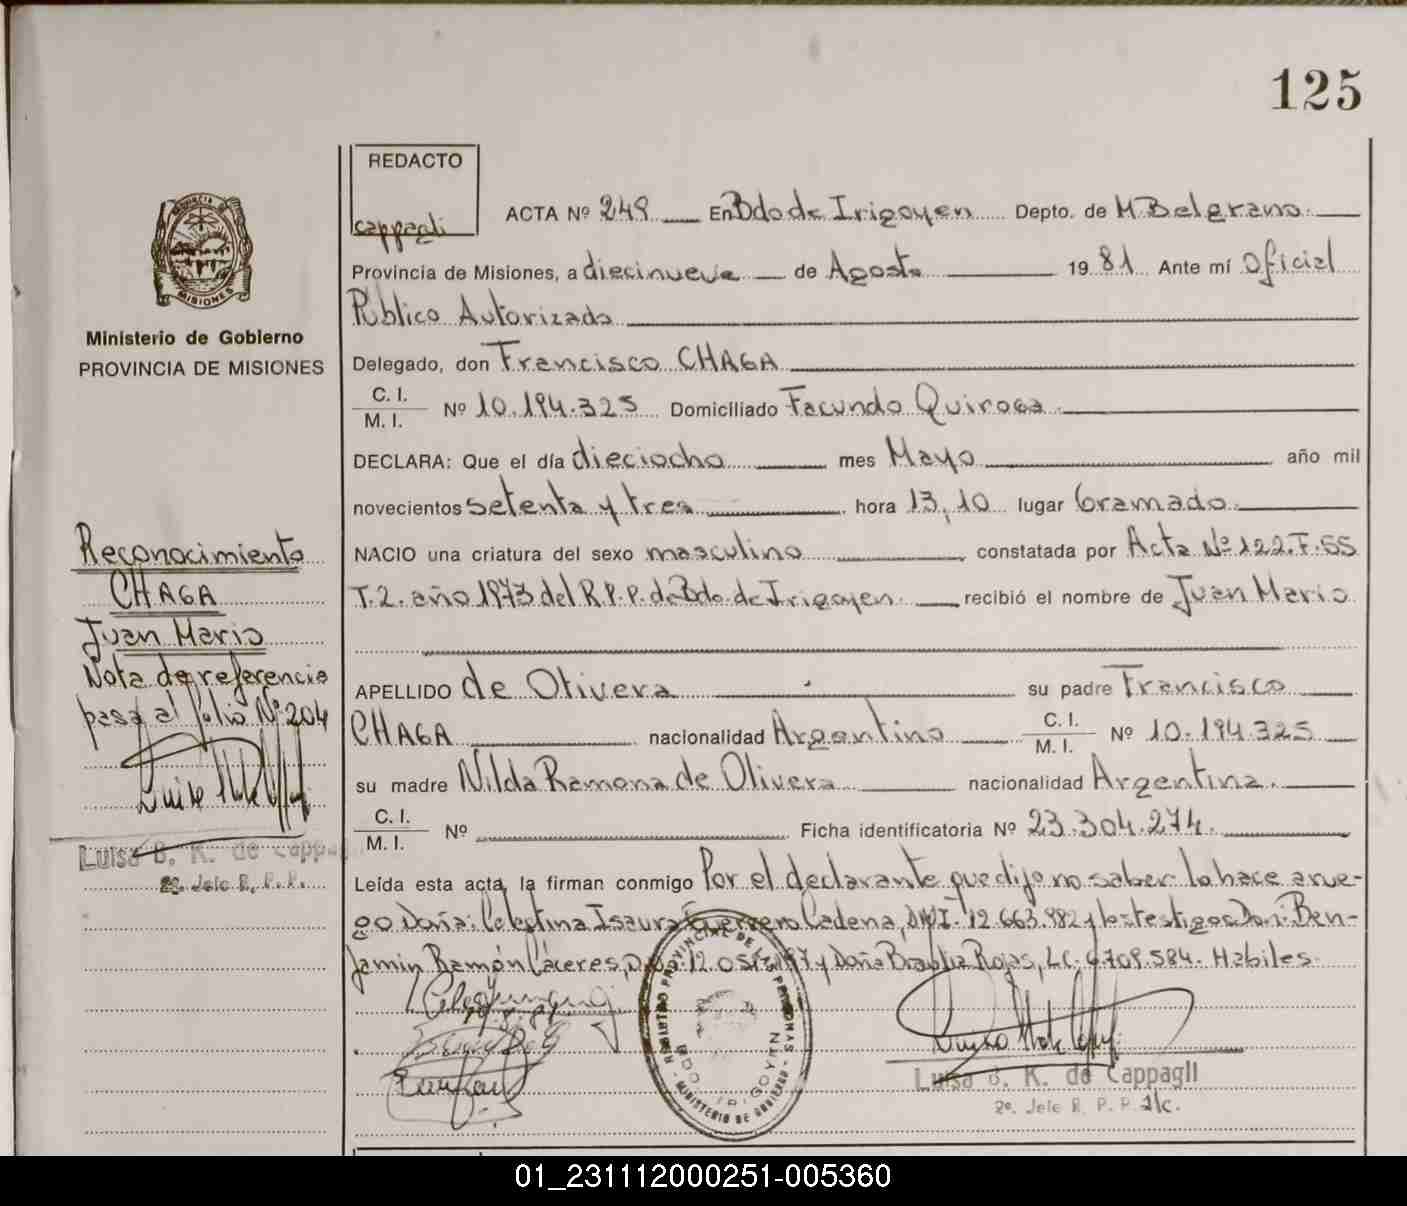 125
REDACTO
cappagli
ACTA Nº 249 En Bdo de Irigoyen Depto. de M Belgrano
Provincia de Misiones, a diecinueve de Agosto 19 81 Ante mí Oficial
Público Autorizado
Delegado, don Francisco CHAGA
C. I.
M. I. Nº 10.194.325 Domiciliado Facundo Quiroga
DECLARA: Que el día dieciocho mes Mayo año mil
novecientos setenta y tres hora 13,10 lugar Gramado
NACIO una criatura del sexo masculino constatada por Acta Nº 122.F.65
T.2. año 1973 del R.P.P. de Bdo. de Irigoyen. recibió el nombre de Juan Mario
APELLIDO de Olivera su padre Francisco
CHAGA nacionalidad Argentino C. I. M. I. Nº 10.194.325
su madre Nilda Ramona de Olivera nacionalidad Argentina.
C. I.
M. I. Nº Ficha identificatoria Nº 23.304.274.
Leída esta acta, la firman conmigo Por el declarante que dijo no saber lo hace a rue-
go Doña: Celestina Isaura Guerrero Cadena, DNI. 12.663.982 y los testigos Don: Ben-
jamin Ramón Cáceres, y Doña Rojas, LC. 6.709.584. Habiles.
REGISTRO PROVINCIAL DE LAS PERSONAS
BDO. IRIGOYEN
MINISTERIO DE GOBIERNO
Luisa B. K. de Cappagli
2º. Jefe R. P. P. Alc.
PROVINCIA DE
MISIONES
Ministerio de Gobierno
PROVINCIA DE MISIONES
Reconocimiento
CHAGA
Juan Mario
Nota de referencia
pasa al folio Nº 204
Luisa B. K. de Cappa
2º. Jefe R. P. P.
01_231112000251-005360